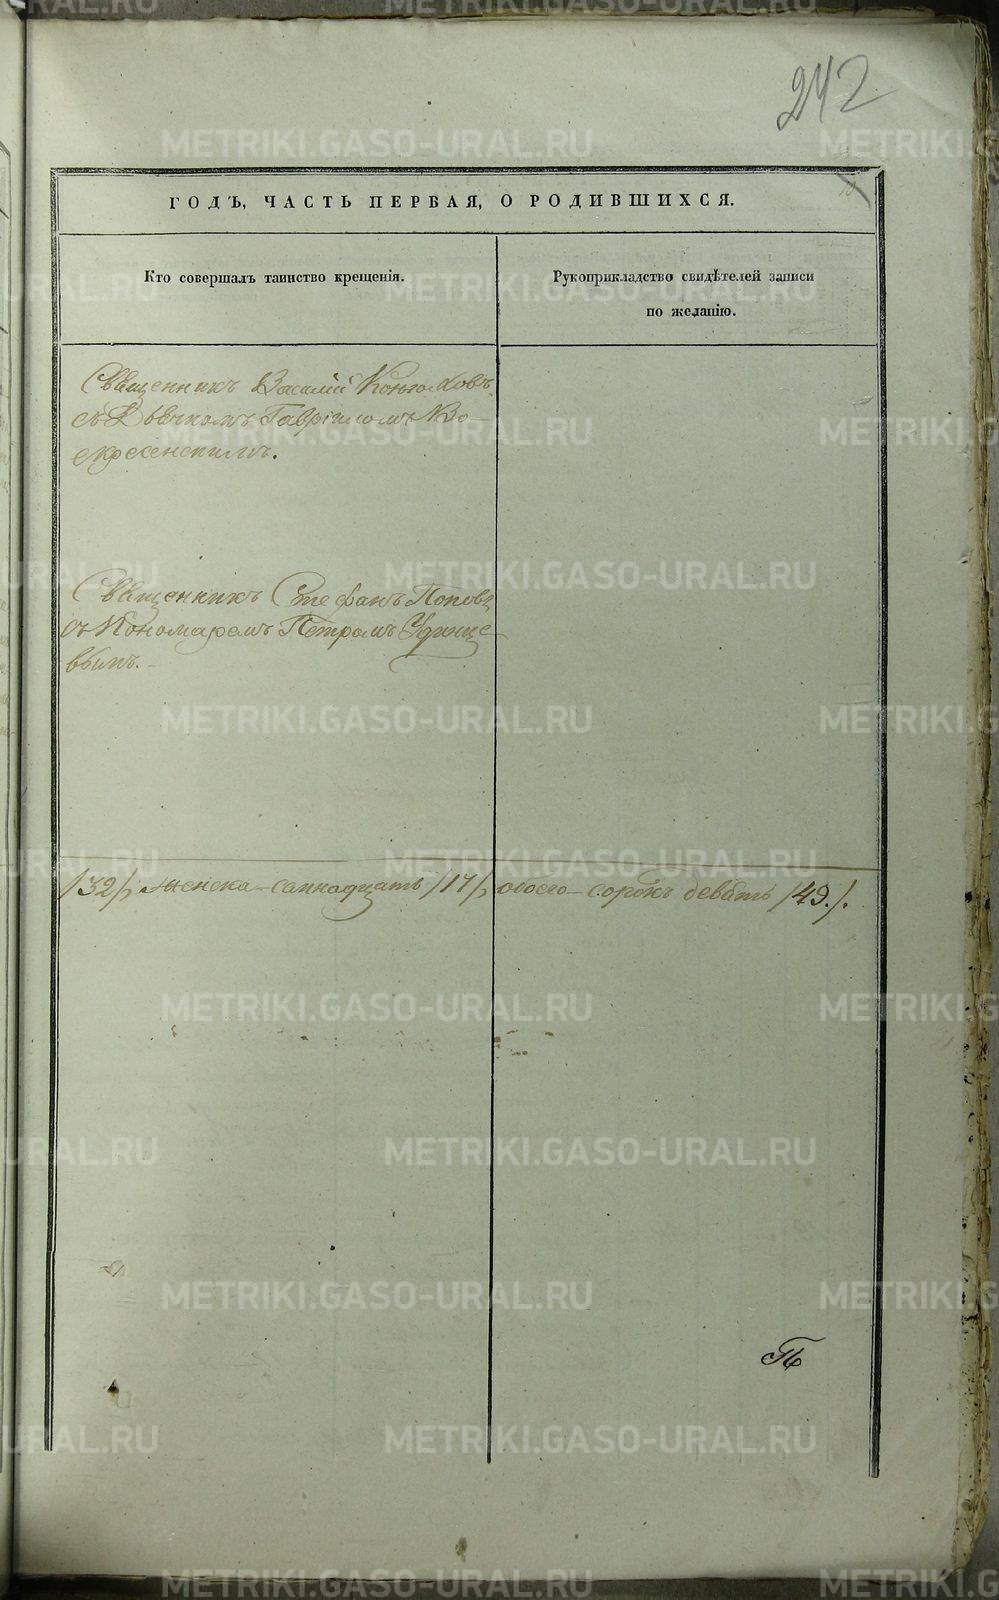 242
ГОДЪ, ЧАСТЬ ПЕРВАЯ, О РОДИВШИХСЯ.
Кто совершалъ таинство крещенія.
Рукоприкладство свидѣтелей записи
по желанію.
Священникъ Василій Конюховъ
съ Дьячкомъ Гавріиломъ Во-
скресенскимъ.
Священникъ Стефанъ Поповъ
съ Пономаремъ Петромъ Удинце-
вымъ.
/32/, женска - семнадцать /17/, обоего - сорокъ девять /49./.
METRIKI.GASO-URAL.RU